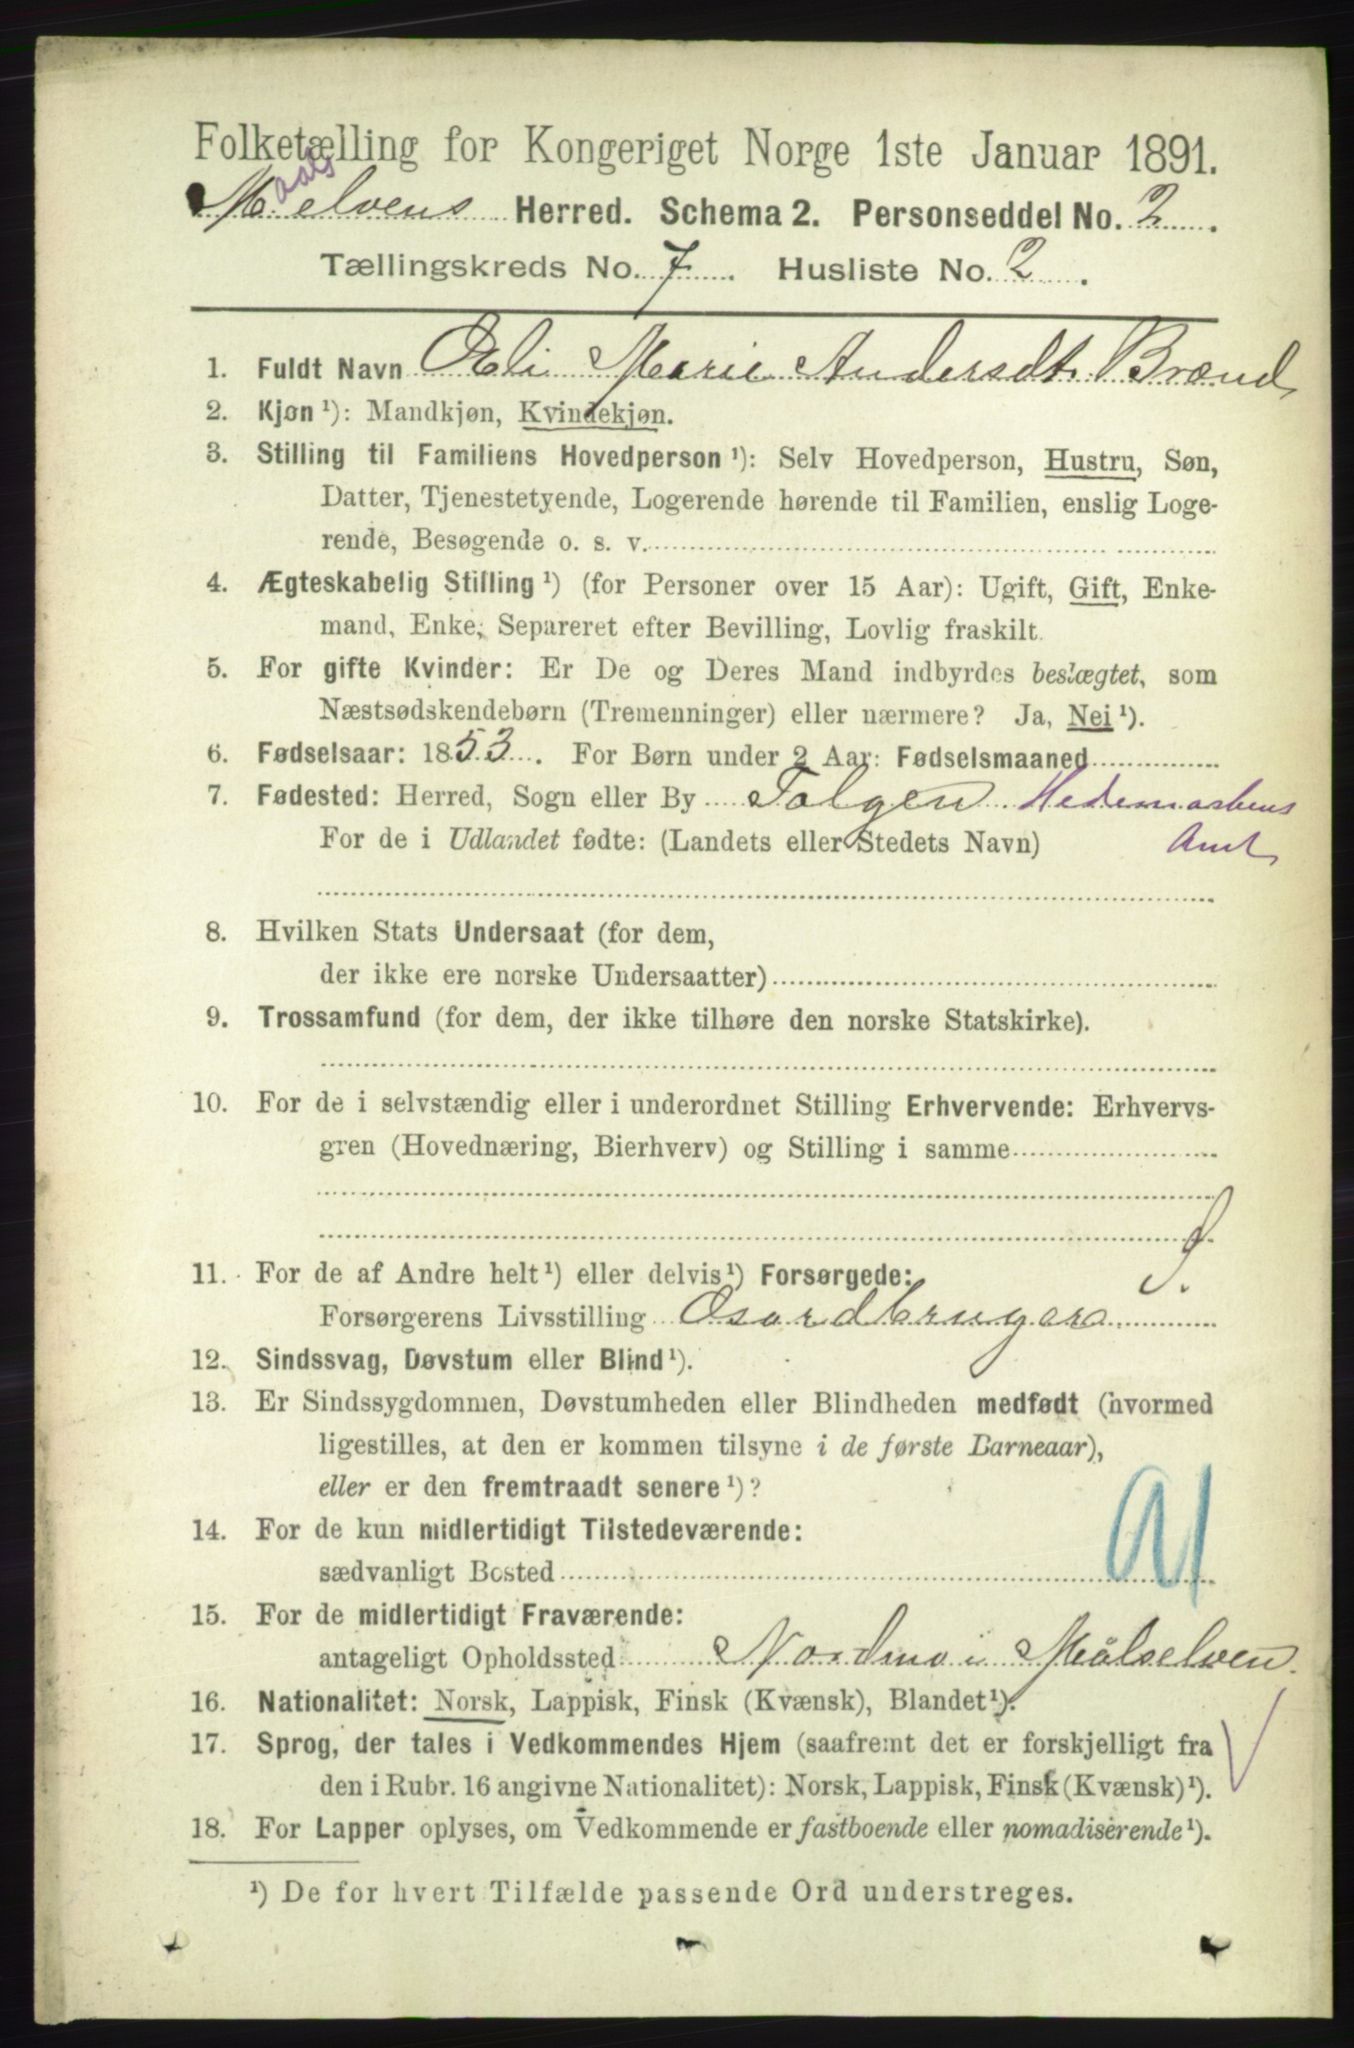 Folketælling for Kongeriget Norge 1ste Januar 1891.
Maalselvens Herred. Schema 2. Personseddel No. 2.
Tællingskreds No. 7. Husliste No. 2.
1. Fuldt Navn Eli Marie Andersdt. Brænd
2. Kjøn ¹): Mandkjøn, Kvindekjøn.
3. Stilling til Familiens Hovedperson ¹): Selv Hovedperson, Hustru, Søn,
Datter, Tjenestetyende, Logerende hørende til Familien, enslig Loge-
rende, Besøgende o. s. v.
4. Ægteskabelig Stilling ¹) (for Personer over 15 Aar): Ugift, Gift, Enke-
mand, Enke, Separeret efter Bevilling, Lovlig fraskilt.
5. For gifte Kvinder: Er De og Deres Mand indbyrdes beslægtet, som
Næstsødskendebørn (Tremenninger) eller nærmere? Ja, Nei ¹).
6. Fødselsaar: 1853. For Børn under 2 Aar: Fødselsmaaned
7. Fødested: Herred, Sogn eller By Tolgen Hedemarkens
For de i Udlandet fødte: (Landets eller Stedets Navn) Amt
8. Hvilken Stats Undersaat (for dem,
der ikke ere norske Undersaatter)
9. Trossamfund (for dem, der ikke tilhøre den norske Statskirke).
10. For de i selvstændig eller i underordnet Stilling Erhvervende: Erhvervs-
gren (Hovednæring, Bierhverv) og Stilling i samme
11. For de af Andre helt ¹) eller delvis ¹) Forsørgede:
Forsørgerens Livsstilling
12. Sindssvag, Døvstum eller Blind ¹).
13. Er Sindssygdommen, Døvstumheden eller Blindheden medfødt (hvormed
ligestilles, at den er kommen tilsyne i de første Barneaar),
eller er den fremtraadt senere ¹)?
14. For de kun midlertidigt Tilstedeværende:
sædvanligt Bosted
15. For de midlertidigt Fraværende:
antageligt Opholdssted Nordmo i Målselven.
16. Nationalitet: Norsk, Lappisk, Finsk (Kvænsk), Blandet ¹).
17. Sprog, der tales i Vedkommendes Hjem (saafremt det er forskjelligt fra
den i Rubr. 16 angivne Nationalitet): Norsk, Lappisk, Finsk (Kvænsk) ¹).
18. For Lapper oplyses, om Vedkommende er fastboende eller nomadiserende ¹).
¹) De for hvert Tilfælde passende Ord understreges.